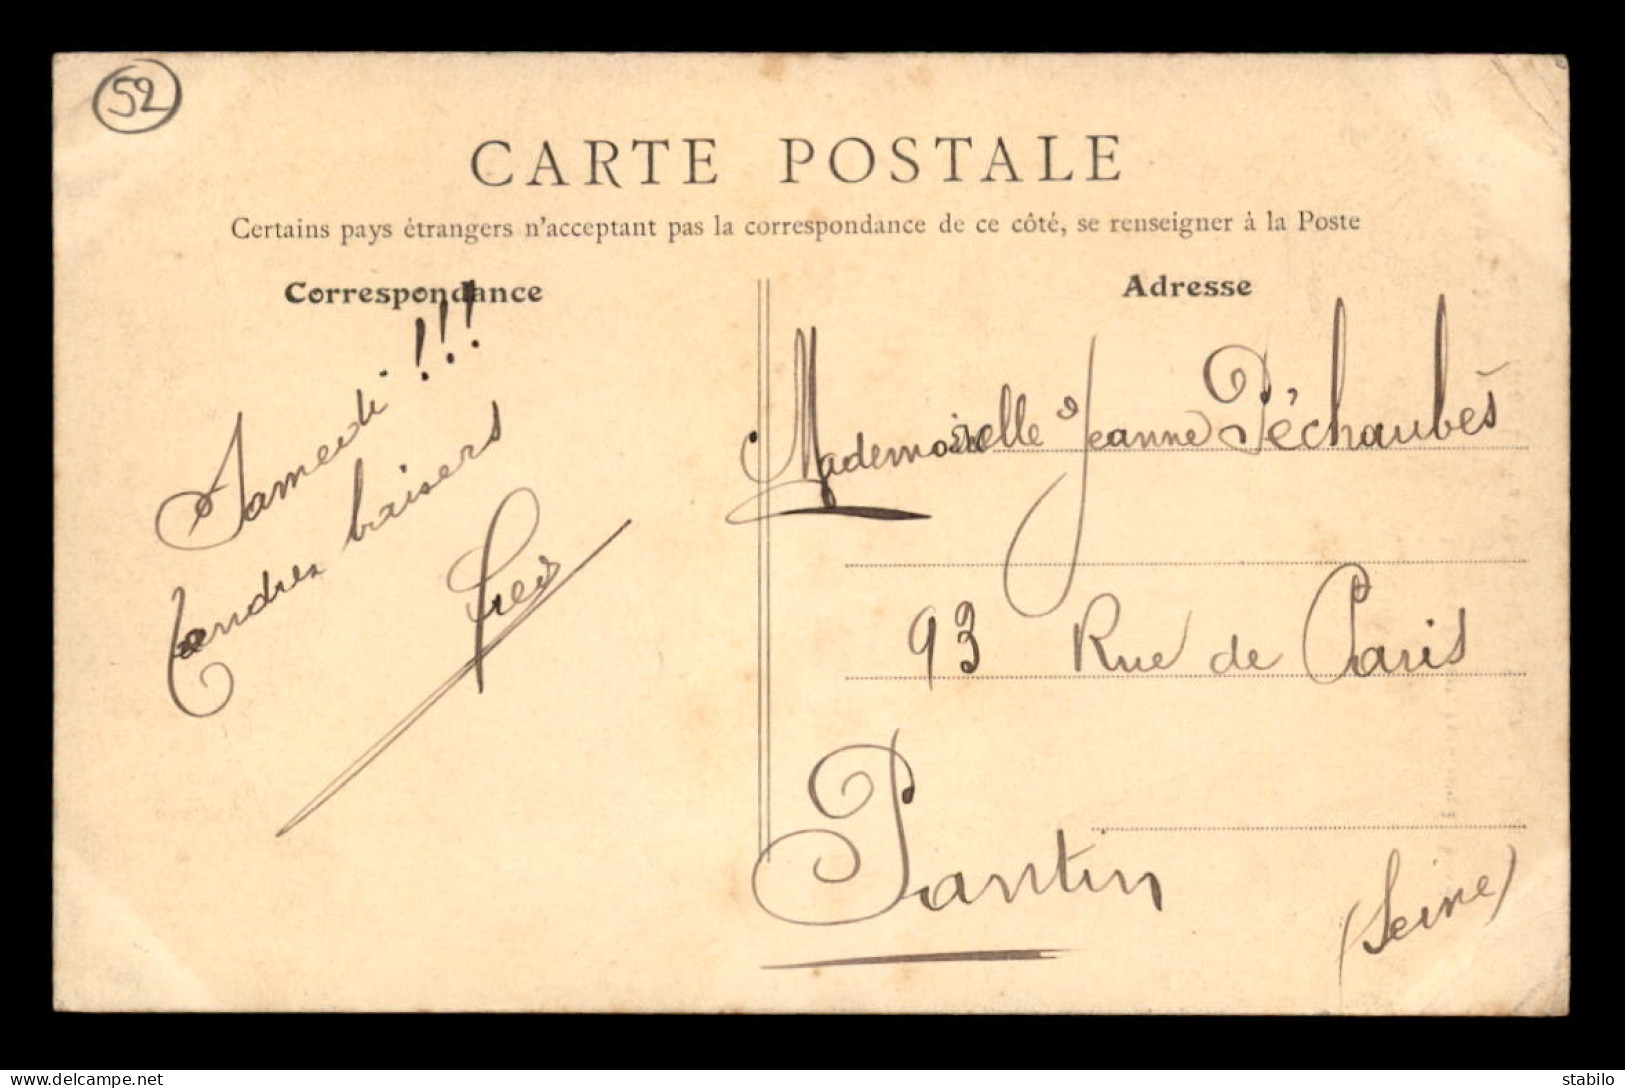 52
CARTE POSTALE
Certains pays étrangers n'acceptant pas la correspondance de ce côté, se renseigner à la Poste
Correspondance
Samedi !!!
Tendres baisers
Adresse
Mademoiselle Jeanne Péchaubès
93 Rue de Paris
Pantin
(Seine)
www.delcampe.net
stabilo